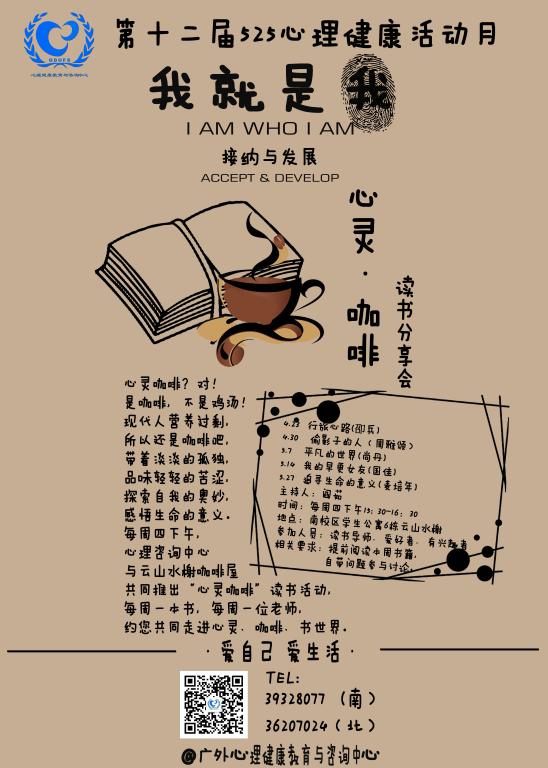 第十二届525心理健康活动月
GDUFS
心理健康教育与咨询中心
我就是我
I AM WHO I AM
接纳与发展
ACCEPT & DEVELOP
心灵·咖啡
读书分享会
心灵咖啡?对!
是咖啡,不是鸡汤!
现代人营养过剩,
所以还是咖啡吧,
带着淡淡的孤独,
品味轻轻的苦涩,
探索自我的奥妙,
感悟生命的意义。
每周四下午,
心理咨询中心
与云山水榭咖啡屋
共同推出“心灵咖啡”读书活动,
每周一本书,每周一位老师,
约您共同走进心灵、咖啡、书世界。
4.23 行旅心路(邵兵)
4.30 偷影子的人(周雅颂)
5.7 平凡的世界(尚丹)
5.14 我的早更女友(国佳)
5.27 追寻生命的意义(麦培年)
主持人:阎茹
时间:每周四下午15:30-16:30
地点:南校区学生公寓6栋云山水榭
参加人员:读书导师、爱好者、有兴趣者
相关要求:提前阅读本周书籍,
自带问题参与讨论。
·爱自己 爱生活·
TEL:
39328077 (南)
36207024 (北)
@广外心理健康教育与咨询中心